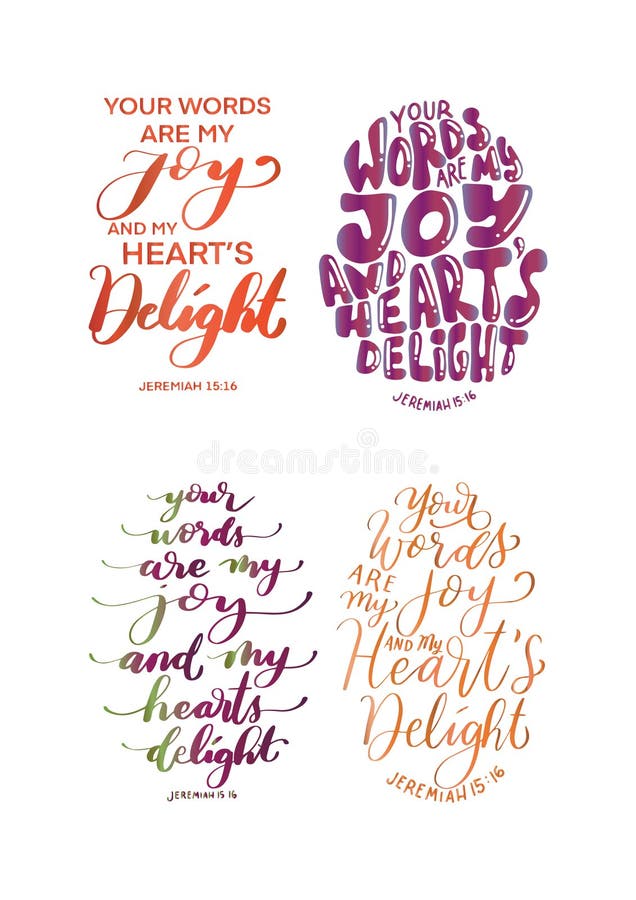 YOUR WORDS
ARE MY
Joy
AND MY
HEART'S
Delight
JEREMIAH 15:16
YOUR
WORDS
ARE MY
JOY
AND
HEART'S
DELIGHT
JEREMIAH 15:16
dreamstime
your
words
are my
joy
and my
hearts
delight
JEREMIAH 15 16
Your
Words
ARE
my Joy
AND My
Heart's
Delight
JEREMIAH 15:16